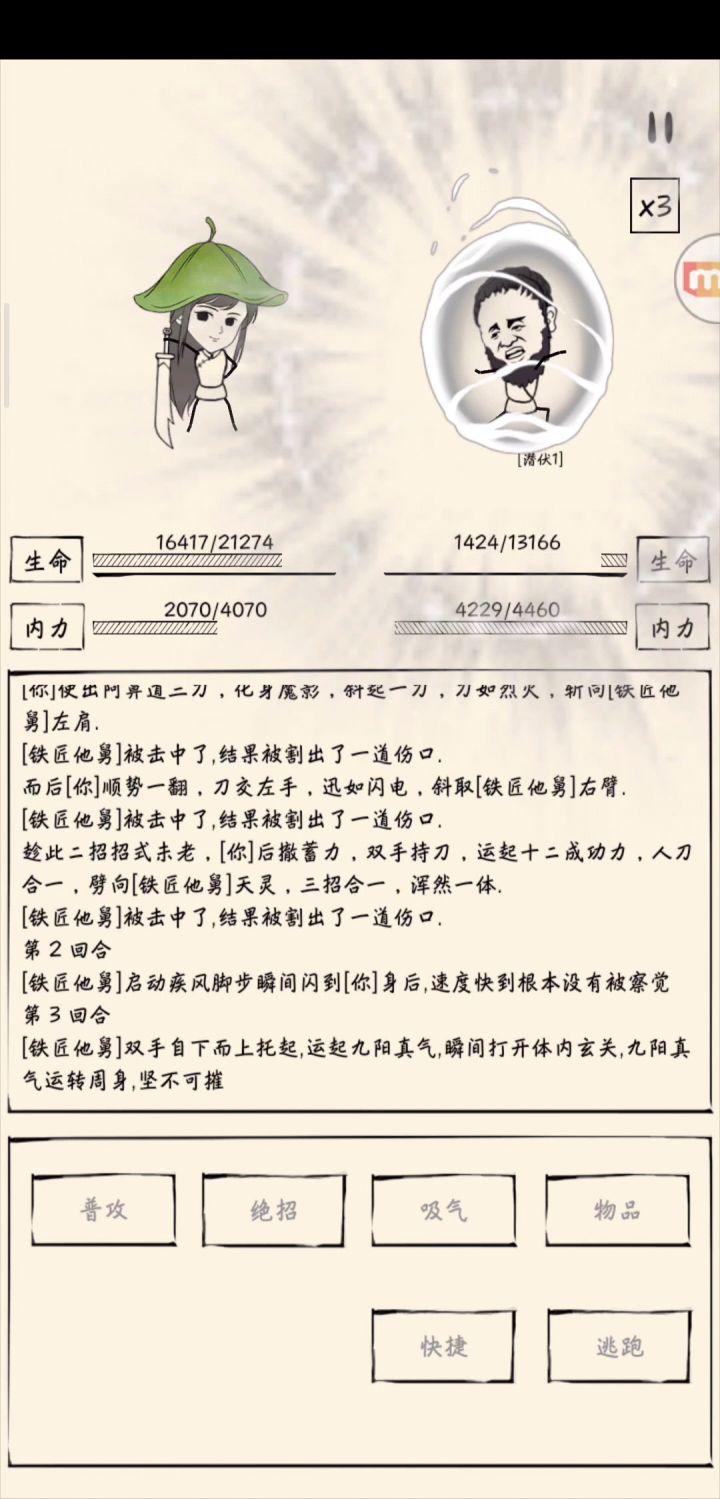 x3
[潜伏1]
16417/21274
1424/13166
生命
生命
2070/4070
4229/4460
内力
内力
[你]使出阿鼻道三刀，化身魔影，斜起一刀，刀如烈火，斩向[铁匠他
舅]左肩.
[铁匠他舅]被击中了,结果被割出了一道伤口.
而后[你]顺势一翻，刀交左手，迅如闪电，斜取[铁匠他舅]右臂.
[铁匠他舅]被击中了,结果被割出了一道伤口.
趁此二招招式未老，[你]后撤蓄力，双手持刀，运起十二成功力，人刀
合一，劈向[铁匠他舅]天灵，三招合一，浑然一体.
[铁匠他舅]被击中了,结果被割出了一道伤口.
第 2 回合
[铁匠他舅]启动疾风脚步瞬间闪到[你]身后,速度快到根本没有被察觉
第 3 回合
[铁匠他舅]双手自下而上托起,运起九阳真气,瞬间打开体内玄关,九阳真
气运转周身,坚不可摧
普攻
绝招
吸气
物品
快捷
逃跑